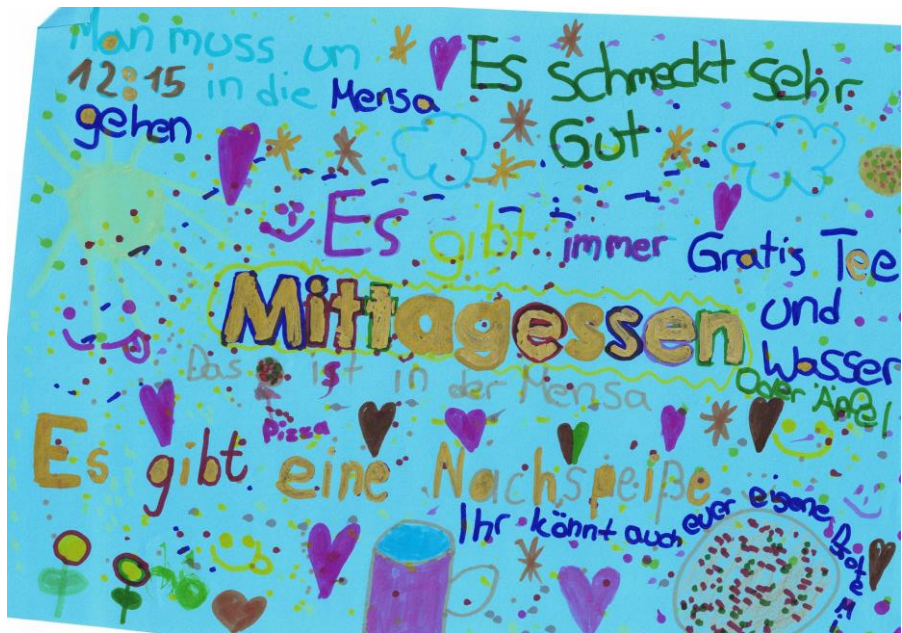 Man muss um
12:15 in die Mensa
gehen
Es schmeckt sehr
Gut
Es gibt immer Gratis Tee
und
Wasser
oder Äpfel
Mittagessen
Das ist in der Mensa
Pizza
Es gibt eine Nachspeiße
Ihr könnt auch euer eigene